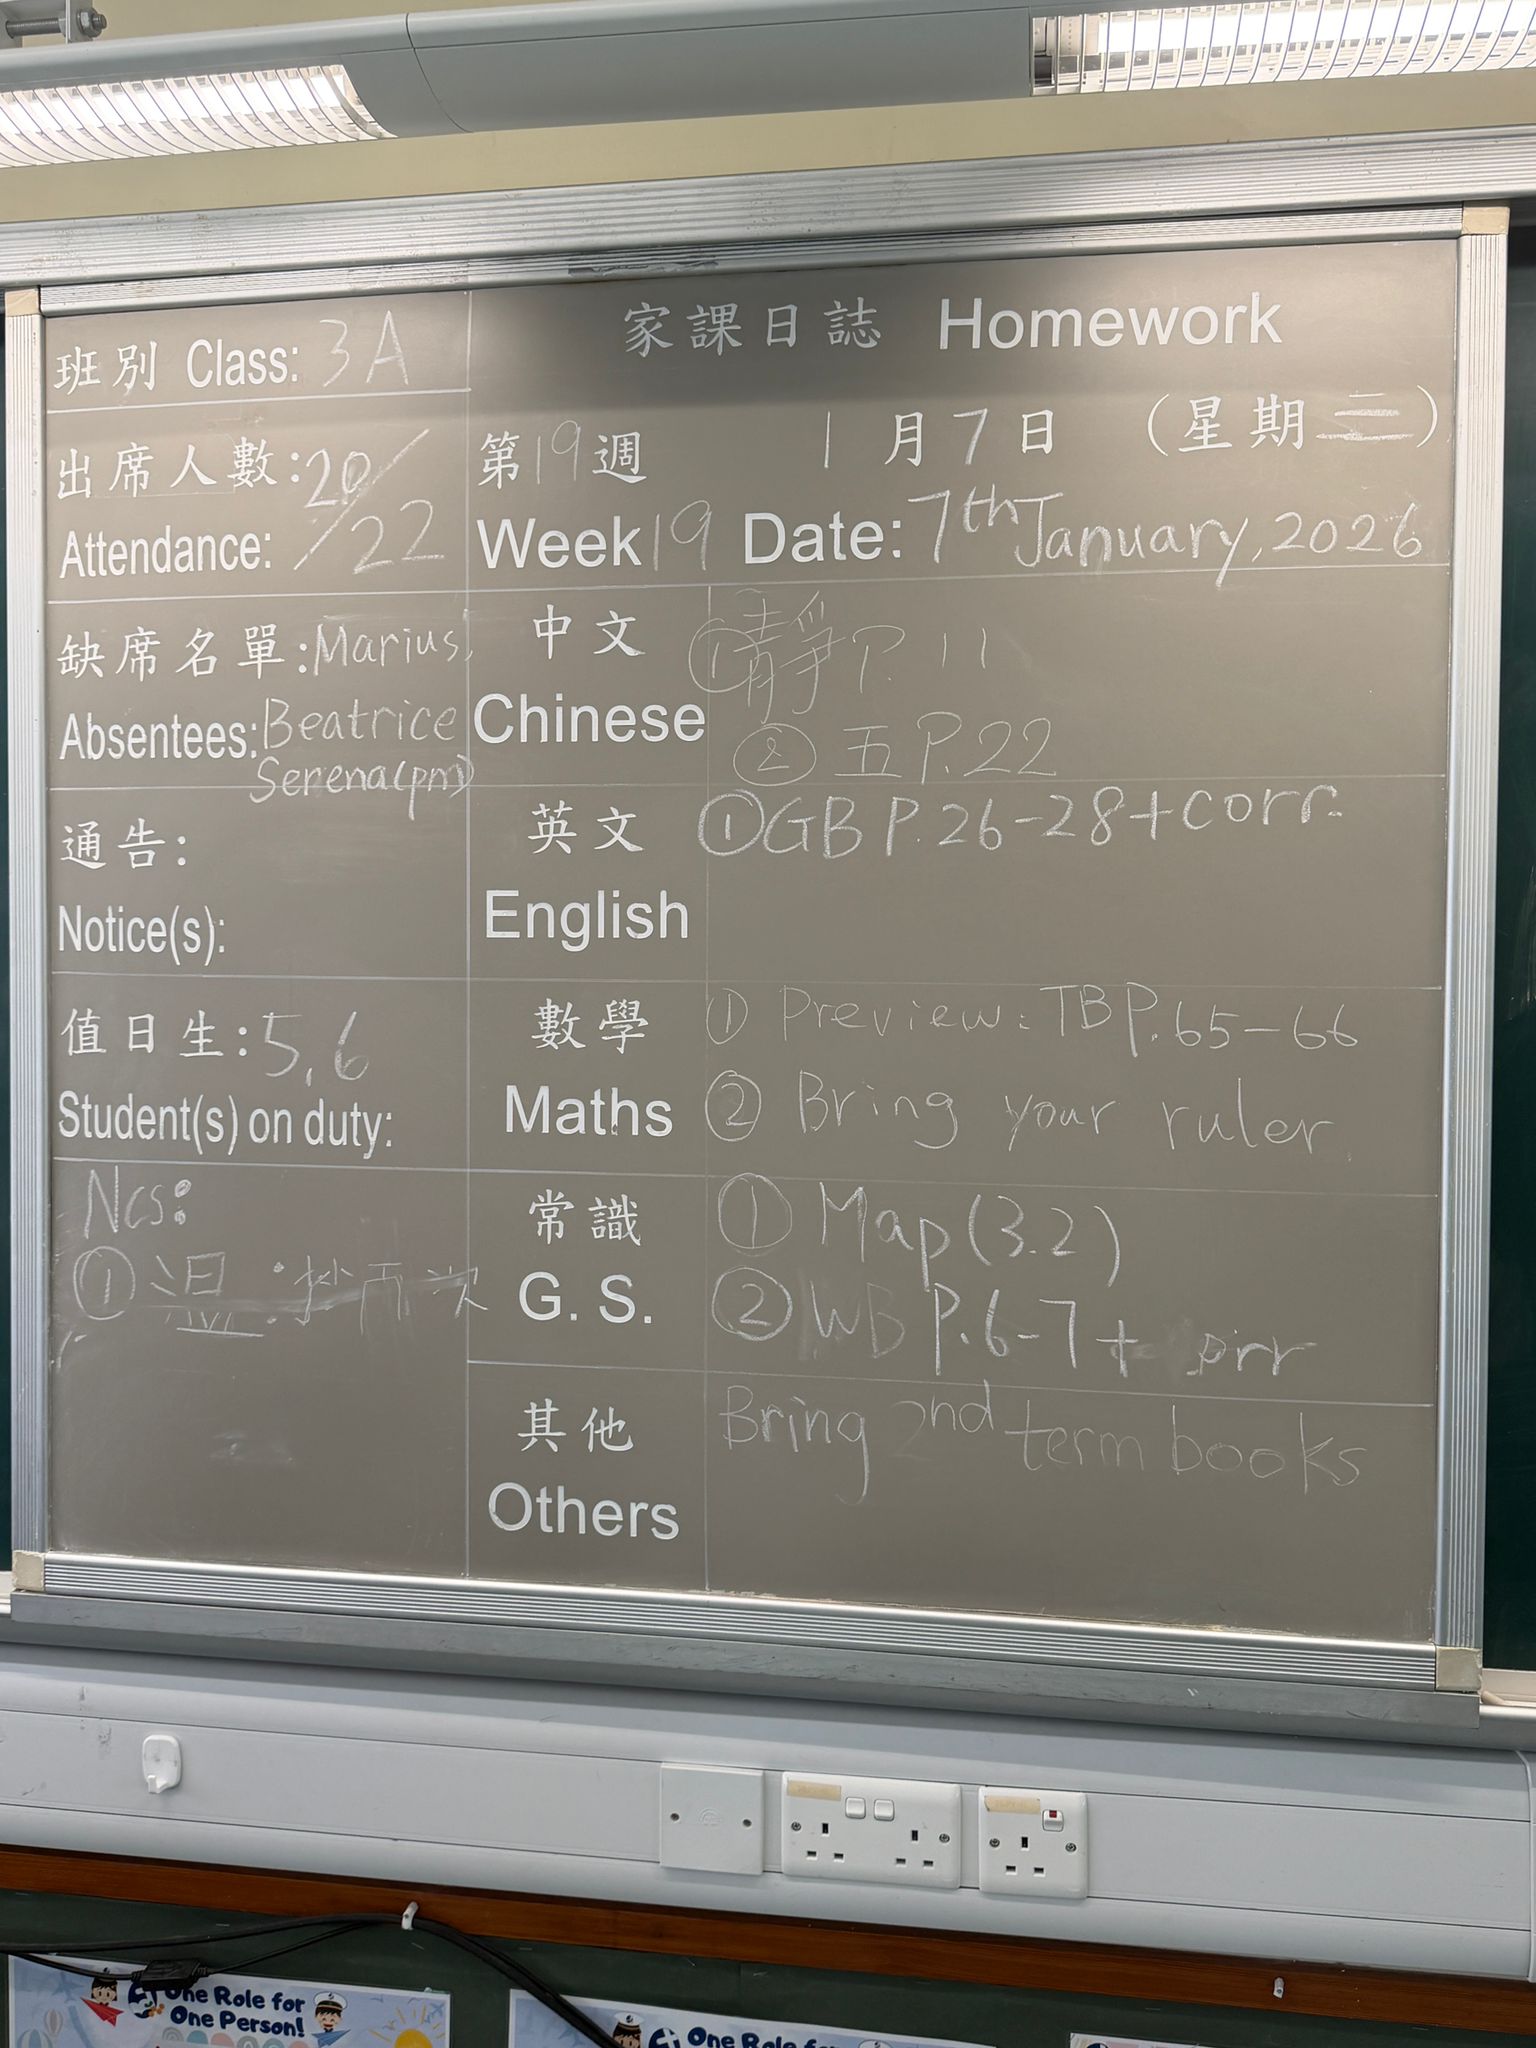 家課日誌 Homework
班別 Class: 3A
出席人數: 20/22
Attendance:
第19週 1月7日 (星期三)
Week 19 Date: 7th January, 2026
缺席名單: Marius,
Absentees: Beatrice
Serena(pm)
通告:
Notice(s):
值日生: 5,6
Student(s) on duty:
Ncs:
① 抄兩次
中文 ①靜 P. 11
Chinese ② 五 P.22
英文 ①GB P.26-28+corr.
English
數學 ① Preview: TB P.65-66
Maths ② Bring your ruler.
常識 ① Map (3.2)
G. S. ② WB P.6-7 +
其他 Bring 2nd term books
Others
One Role for
One Person!
One Role for